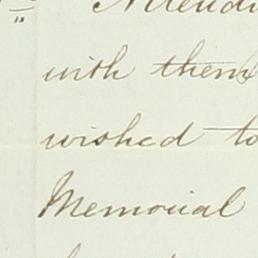 with them
wished to
Memorial